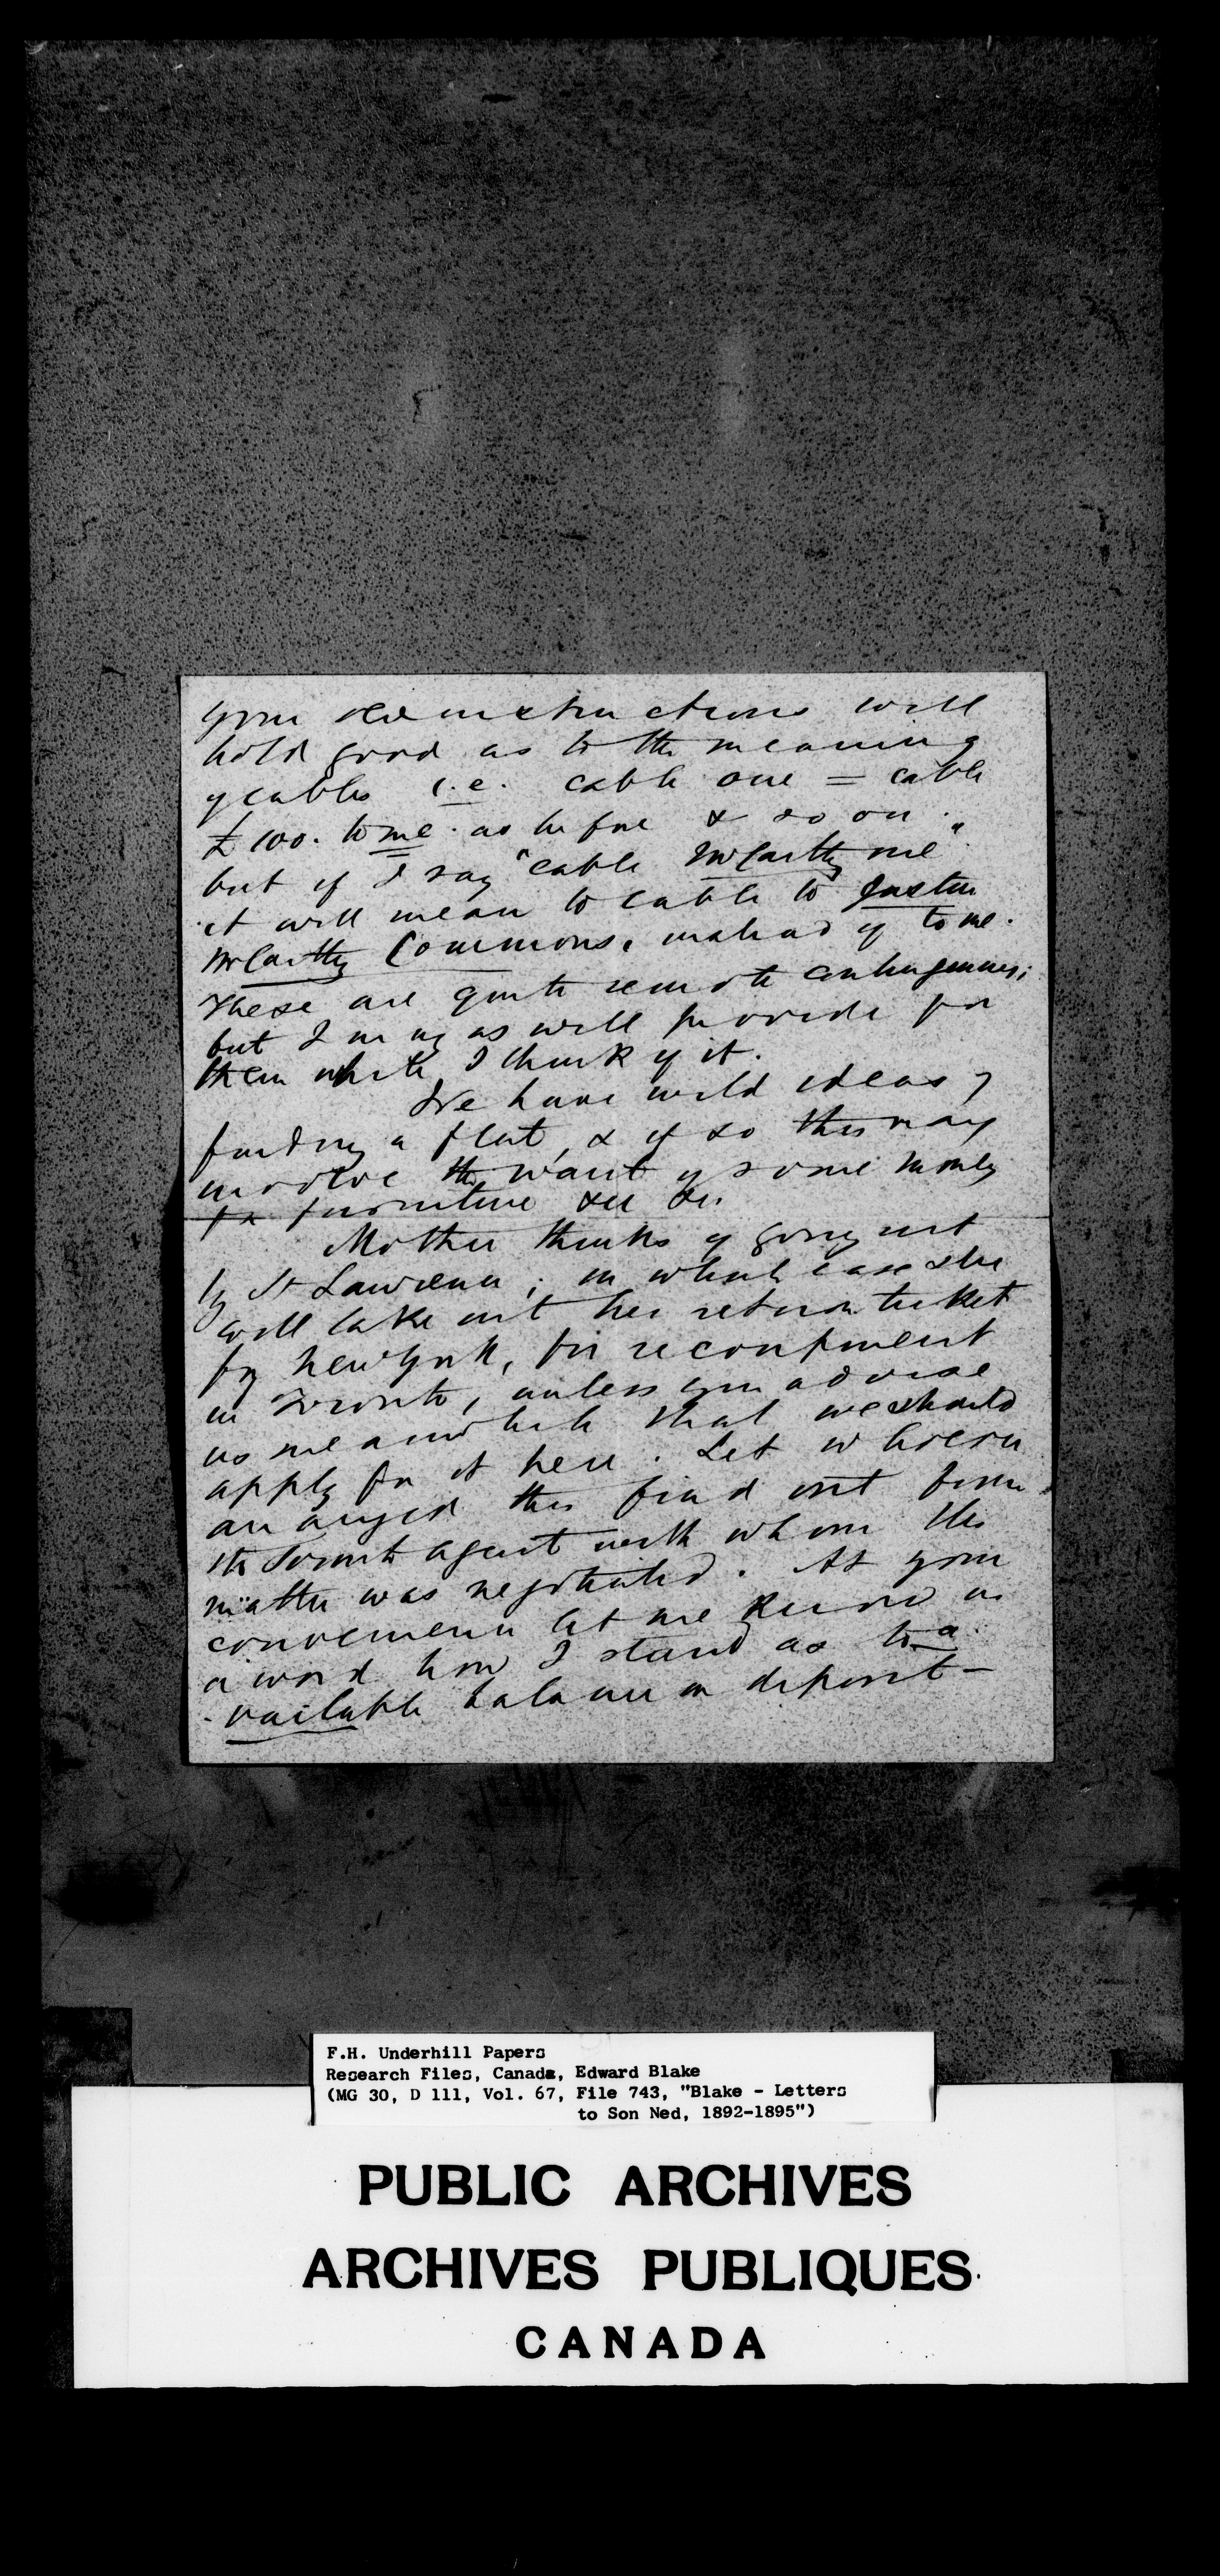 your old instructions will
hold good as to the meaning
of cables i.e. cable one = cable
£100. to me. as before & so on.
but if I say "cable McCarthy me"
it will mean to cable to Justin
McCarthy Commons, instead of to me.
These are quite remote contingencies;
but I may as well provide for
them while I think of it.
We have wild ideas of
finding a flat, & if so this may
involve the want of some money
for furniture &c &c
Mother thinks of going out
by St Lawrence; in which case she
will take out her return ticket
by New York, for recoupment
in Toronto, unless you advise
us meanwhile that we should
apply for it here. Let whoever
arranged this find out from
the Toronto agent with whom the
matter was negotiated. At your
convenience let me know in
a word how I stand as to a-
-vailable balance on deposit -
F.H. Underhill Papers
Research Files, Canada, Edward Blake
(MG 30, D 111, Vol. 67, File 743, "Blake - Letters
to Son Ned, 1892-1895")
PUBLIC ARCHIVES
ARCHIVES PUBLIQUES
CANADA